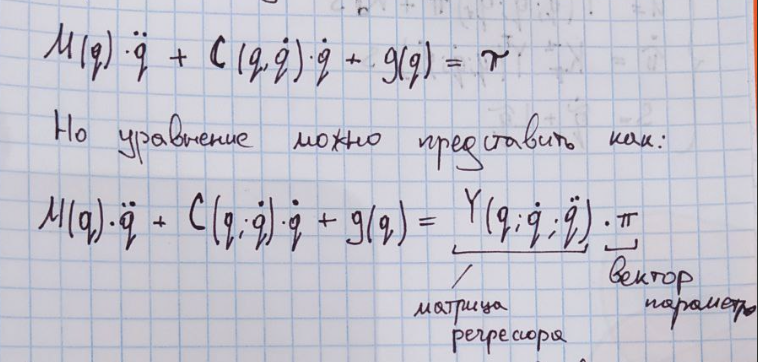 M(q)·q̈ + C(q,q̇)·q̇ + g(q) = τ
Но уравнение можно представить как:
M(q)·q̈ + C(q;q̇)·q̇ + g(q) = Y(q;q̇;q̈)·π
матрица
регрессора
вектор
параметро